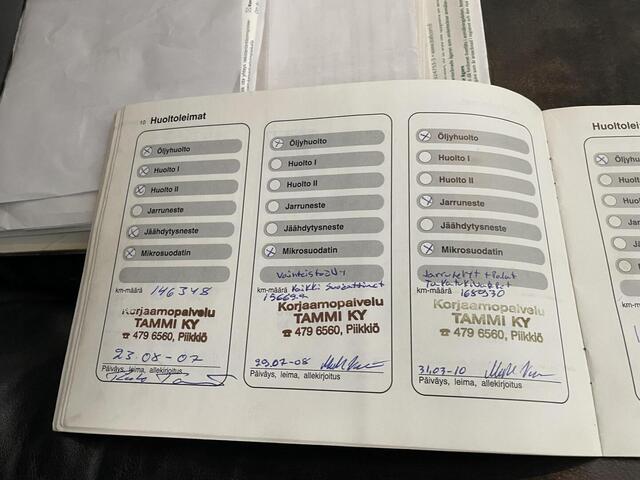 10 Huoltoleimat
Öljyhuolto
Huolto I
Huolto II
Jarruneste
Jäähdytysneste
Mikrosuodatin
km-määrä 146348
Korjaamopalvelu
TAMMI KY
☎ 479 6560, Piikkiö
23.08-07
Päiväys, leima, allekirjoitus
Öljyhuolto
Huolto I
Huolto II
Jarruneste
Jäähdytysneste
Mikrosuodatin
km-määrä Kaikki Suodattimet
Korjaamopalvelu
TAMMI KY
☎ 479 6560, Piikkiö
29.07-08
Päiväys, leima, allekirjoitus
Öljyhuolto
Huolto I
Huolto II
Jarruneste
Jäähdytysneste
Mikrosuodatin
km-määrä 168930
Korjaamopalvelu
TAMMI KY
☎ 479 6560, Piikkiö
31.03-10
Päiväys, leima, allekirjoitus
Huoltolei
Öljyhu
Huolto
Huolt